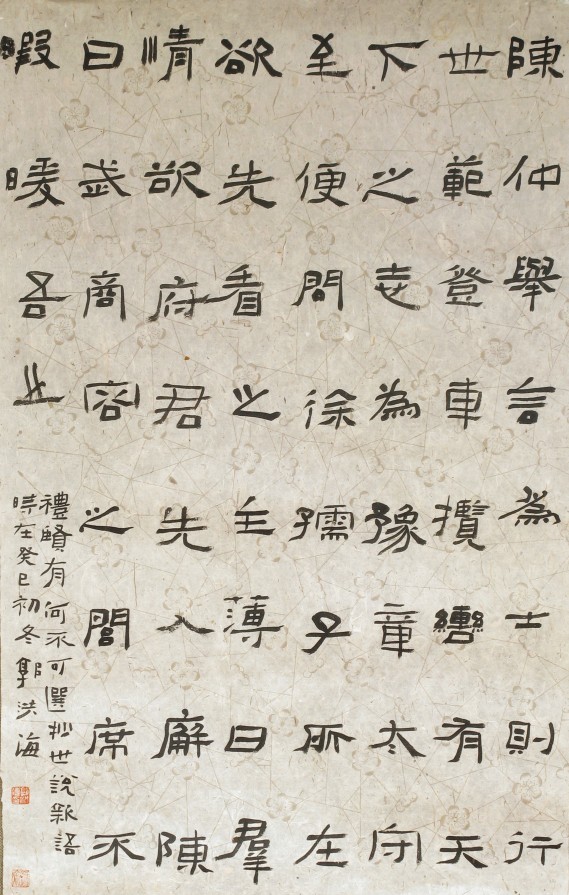 陳仲舉言為士則行
世範登車攬轡有天
下之志為豫章太守
至便問徐孺子所在
欲先看之主薄曰羣
情欲府君先入廨陳
曰武商容之閭席不
暇暖吾之
禮賢有何不可選抄世說新語
時在癸巳初冬郭洪海